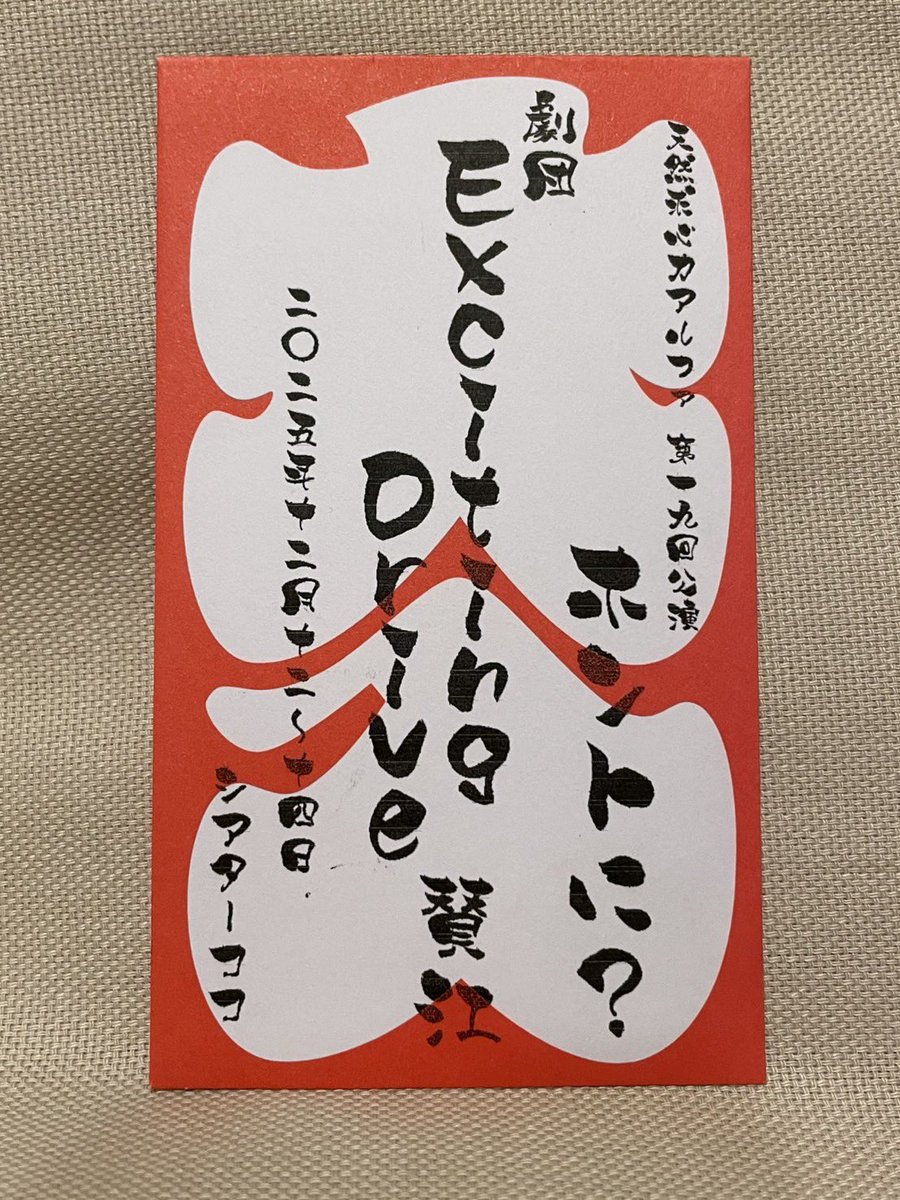 大入
天然求心力アルファ 第一九回公演
ホントに?
劇団
Exciting
Drive
賛江
二〇二五年十二月十二~十四日
シアターココ